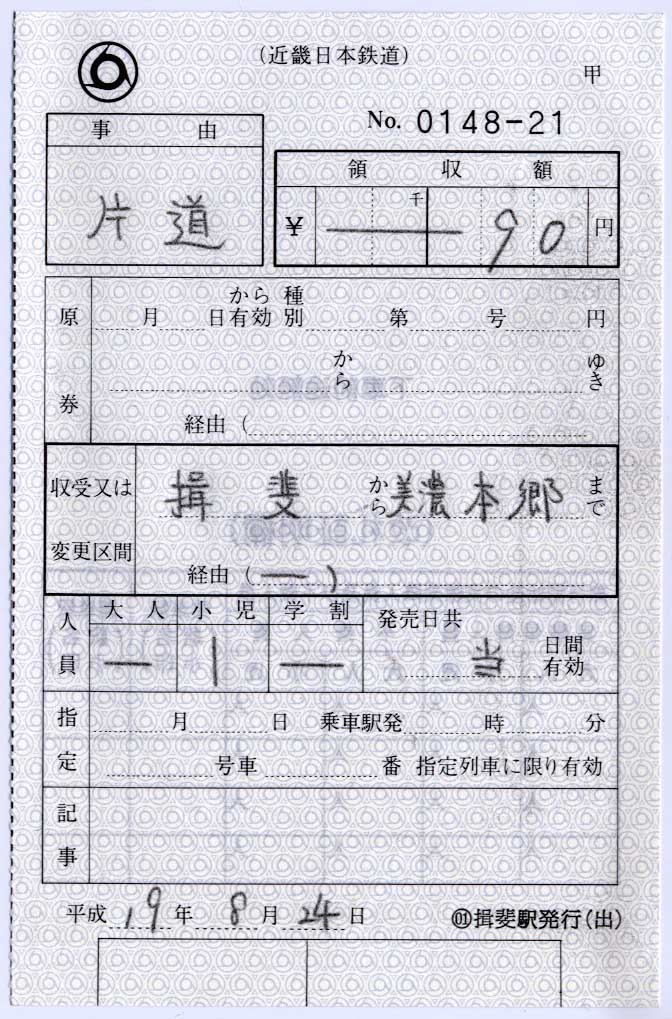 (近畿日本鉄道)
甲
No. 0148-21
事由
片道
領収額
¥ 千 — 90 円
原券
月 日から有効 種別 第 号 円
から ゆき
経由 (
収受又は変更区間
揖斐 から 美濃本郷 まで
経由 ( — )
人員
大人 小児 学割 発売日共
— 1 — 当 日間有効
指定
月 日 乗車駅発 時 分
号車 番 指定列車に限り有効
記事
平成 19 年 8 月 24 日 01 揖斐駅発行(出)